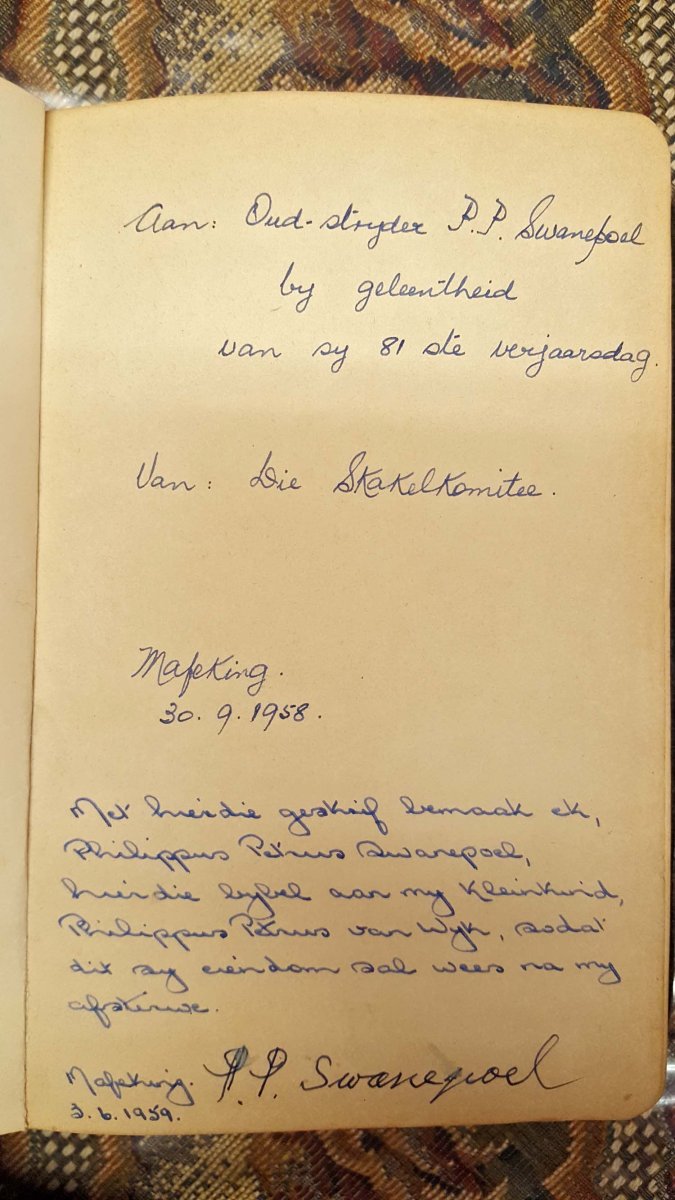 Aan: Oud-stryder P.P. Swanepoel
by geleentheid
van sy 81 ste verjaarsdag.
Van: Die Skakelkomitee.
Mafeking.
30. 9. 1958.
Met hierdie geskrif bemaak ek,
Philippus Petrus Swanepoel,
hierdie bybel aan my kleinkind,
Philippus Petrus van Wyk, sodat
dit sy eiendom sal wees na my
afsterwe.
Mafeking. P.P. Swanepoel
3.6.1959.